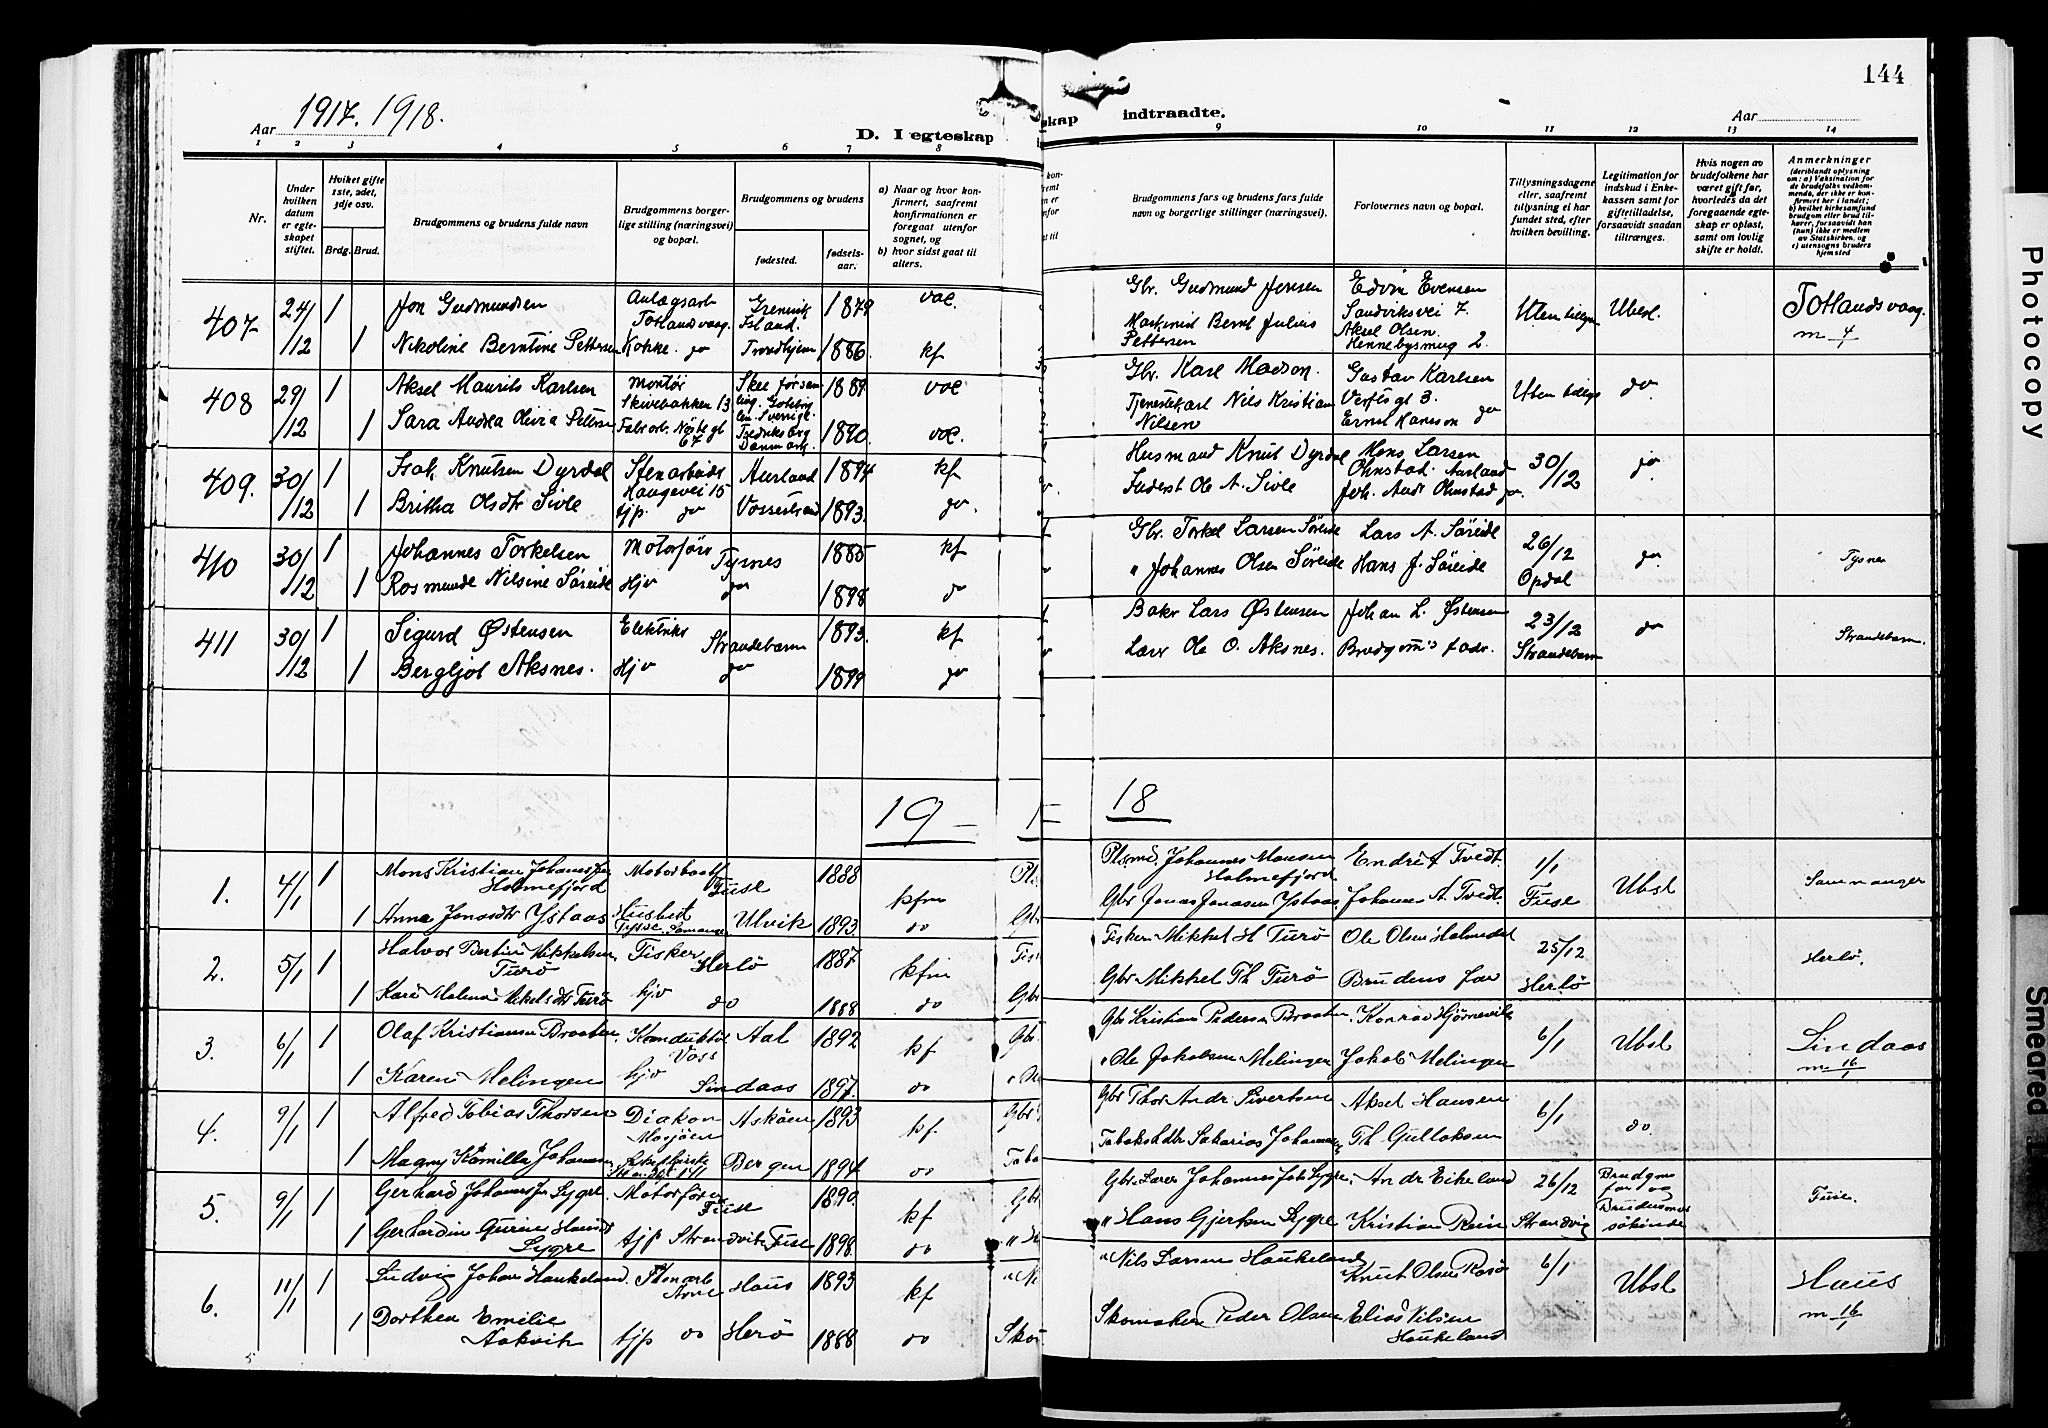 144
Aar 1917. 1918.
D. I egteskap
skap indtraadte.
Aar
1 2 3 4 5 6 7 8
9 10 11 12 13 14
Nr.
Under hvilken datum er egteskapet stiftet.
Hviket gifte 1ste, 2det, 3dje osv.
Brdg. Brud.
Brudgommens og brudens fulde navn
Brudgommens borgerlige stilling (næringsvei) og bopæl.
Brudgommens og brudens
fødested.
fødselsaar.
a) Naar og hvor konfirmert, saafremt konfirmationen er foregaat utenfor sognet, og
b) hvor sidst gaat til alters.
Brudgommens fars og brudens fars fulde navn og borgerlige stillinger (næringsvei).
Forlovernes navn og bopæl.
Tillysningsdagene eller, saafremt tillysning ei har fundet sted, efter hvilken bevilling.
Legitimation for indskud i Enkekassen samt for giftetilladelse, forsaavidt saadan tiltrænges.
Hvis nogen av brudefolkene har været gift før, hvorledes da det foregaaende egteskap er opløst, samt om lovlig skifte er holdt.
Anmerkninger
407 24/12 1 Jon Gudmundsen Anlægsarb Totlandsvaag. Grenivik Island. 1879 vac. Gbr. Gudmund Jensen Edvin Evensen Sandviksvei 7 Uten tillysn Ubesl. Totlandsvaag. m 4/1
1 Nikoline Berntine Pettersen Kokke do Trondhjem 1886 kf Maskinist Bernt Julius Pettersen Aksel Olsen. Hennebysmug 2.
408 29/12 1 Aksel Maurits Karlsen Montør Skivebakken 13 1889 vac Gbr. Karl Madson. Gustav Karlsen Verftsgt 3. Uten do
1 Sara Andrea Olivia Peters Fabr. arb. Nøstegt 67 Fredriksborg Danmark 1890. vac. Tjenestekarl Nils Kristian Nilsen Ernst Hanson do
409. 30/12 1 Isak Knutsen Dyrdal Stenarbeider Haugevei 15 Aurland 1894 kf Husmand Knut Dyrdal Mons Larsen Ohnstad. Aurland 30/12 do
1 Britha Olsdtr Sivle tjp. do Vossestrand 1893. do. Inderst Ole A. Sivle Joh. Andr Ohnstad do.
410 30/12 1 Johannes Torkelsen Motorfører Tysnes 1885 kf Gbr. Torkel Larsen Søreide Lars A. Søreide 26/12 Opdal do. Tysnes
1 Rosmunde Nilsine Søreide Hjv do 1898 do " Johannes Olsen Søreide Hans J. Søreide
411 30/12 1 Sigurd Østensen Elektriker Strandebarm 1893. kf Baker Lars Østensen Johan L. Østensen 23/12 Strandebarm do Strandebarm
1 Bergljot Aksnes. Hjv do 1899 do Lærer Ole O. Aksnes. Brudgom's fader.
19 — 18
1. 4/1 1 Mons Kristian Johannesen Holmefjord Fuse 1888 kfm Johannes Monsen Holmefjord Endre A Tvedt. 1/1 Fuse Ubsl Samnanger
1 Anna Jonasdtr Ystaas Ulvik 1893 do Gbr Jonas Jonasen Ystaas. Johannes A. Tvedt.
2. 5/1 1 Halvor Bertin Mikkelsen Turø Fisker Herlø 1887. kfm Fisker Mikkel H Turø Ole Olsen Halmedal 25/12 Herlø Herlø.
1 Kari Mikelsdtr Turø hjv do 1888 do Gbr Mikkel Th Turø Brudens far
3. 6/1 1 Olaf Kristiansen Braaten Konduktør Voss Aal 1892 kf Gbr Kristian Pedersen Braaten. Konrad Hjørnevik 6/1 Ubsl Lindaas m 16/1
1 Karen Melingen hjv Lindaas 1897. do " Ole Jakobsen Melingen Jakob Melingen
4. 9/1 1 Alfred Tobias Thorsen Diakon Mosjøen Askøen 1893 kf. Gbr Thor Andr Sivertsen Aksel Hansen 6/1 do.
1 Magny Kamilla Johannesen Bergen 1894. do Tabakshdlr Sakarias Johannesen Th Gulloksen
5. 9/1 1 Gerhard Johannesen Lygre. Motorfører Fuse 1890. kf Gbr Lærer Johannes Joh Lygre. Andr Eikeland 26/12 Strandvig Fuse.
1 Gerhardine Gurine Hansdt Lygre tjp Strandvik Fuse 1898. do " Hans Gjertsen Lygre Kristian Rein
6. 11/1 1 Ludvig Johan Haukeland. Arne Haus 1893 kf " Nils Larsen Haukeland Knut Olsen 6/1 Ubsl Haus m 16/1
1 Dorthea Emilie Aakvik tjp do Herø 1888 do Skomaker Peder Olsen Elias Nilsen Haukeland
Photocopy
Smeared